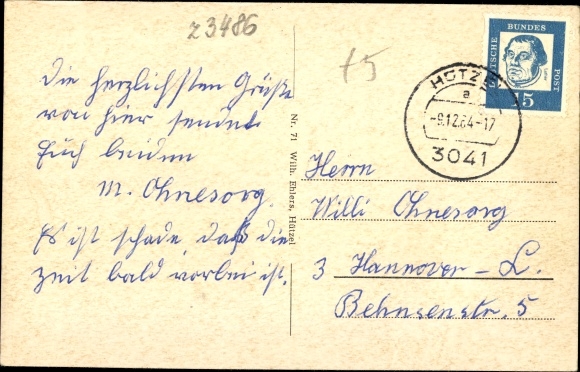 z3486
15
Die herzlichsten Grüße
von hier sendet
Euch beiden
M. Ohnesorg.
Es ist schade, daß die
Zeit bald vorbei ist.
Nr. 71 Wilh. Ehlers, Hützel
DEUTSCHE BUNDES POST
15
HÜTZEL
a
-9.12.64-17
3041
Herrn
Willi Ohnesorg
3 Hannover-L.
Behnsenstr. 5